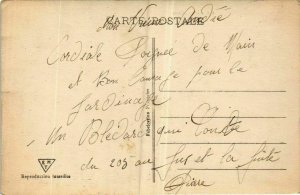 CARTE POSTALE
Mon Vieux André
Cordiale Poignée de Main
et Bon Courage pour la
Jardinage
Un Blédard qui
du 203 au Jus et la Suite
Pierre
Reproduction interdite